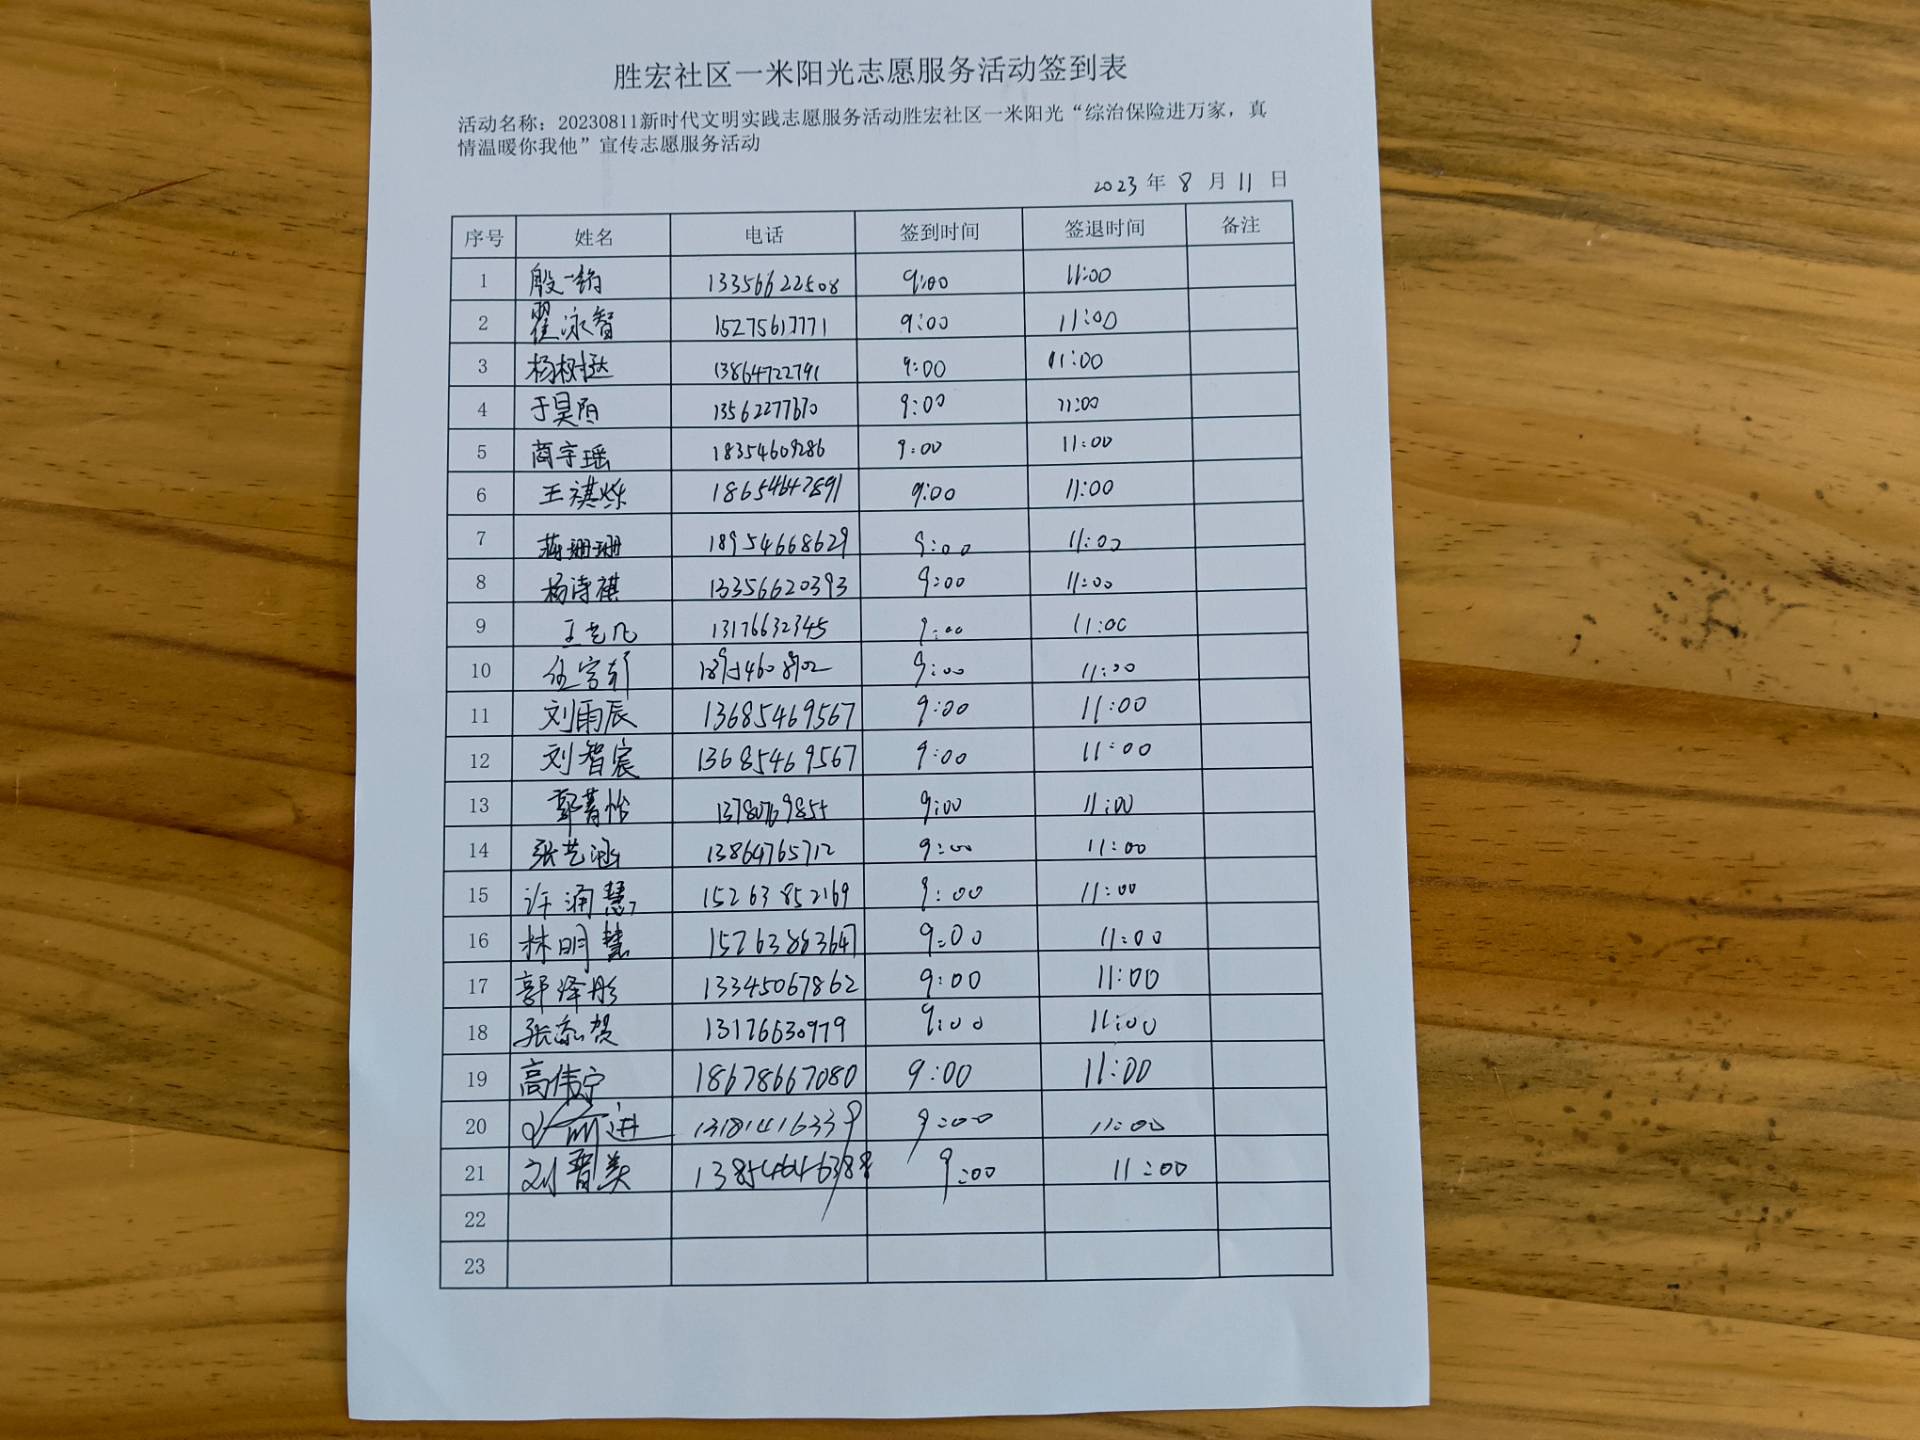 胜宏社区一米阳光志愿服务活动签到表
活动名称：20230811新时代文明实践志愿服务活动胜宏社区一米阳光“综治保险进万家，真
情温暖你我他”宣传志愿服务活动
2023年8月11日
序号 姓名 电话 签到时间 签退时间 备注
1 殷一铭 13356622508 9:00 11:00
2 翟泳智 15275617771 9:00 11:00
3 杨树挺 13864722791 9:00 11:00
4 于昊阳 13562277670 9:00 11:00
5 商宇瑶 18354609286 9:00 11:00
6 王祺烁 18654642891 9:00 11:00
7 蒋珊珊 18954668629 9:00 11:00
8 杨诗祺 13356620393 9:00 11:00
9 王艺凡 13176632345 9:00 11:00
10 9:00 11:00
11 刘雨辰 13685469567 9:00 11:00
12 刘智宸 13685469567 9:00 11:00
13 郭菁怡 9:00 11:00
14 张艺涵 13864765712 9:00 11:00
15 许涵慧 15263852169 9:00 11:00
16 林明慧 15263883647 9:00 11:00
17 郭烽彤 13345067862 9:00 11:00
18 张添贺 13176630979 9:00 11:00
19 高伟宁 18678667080 9:00 11:00
20 13181416339 9:00 11:00
21 刘晋美 13854646388 9:00 11:00
22
23